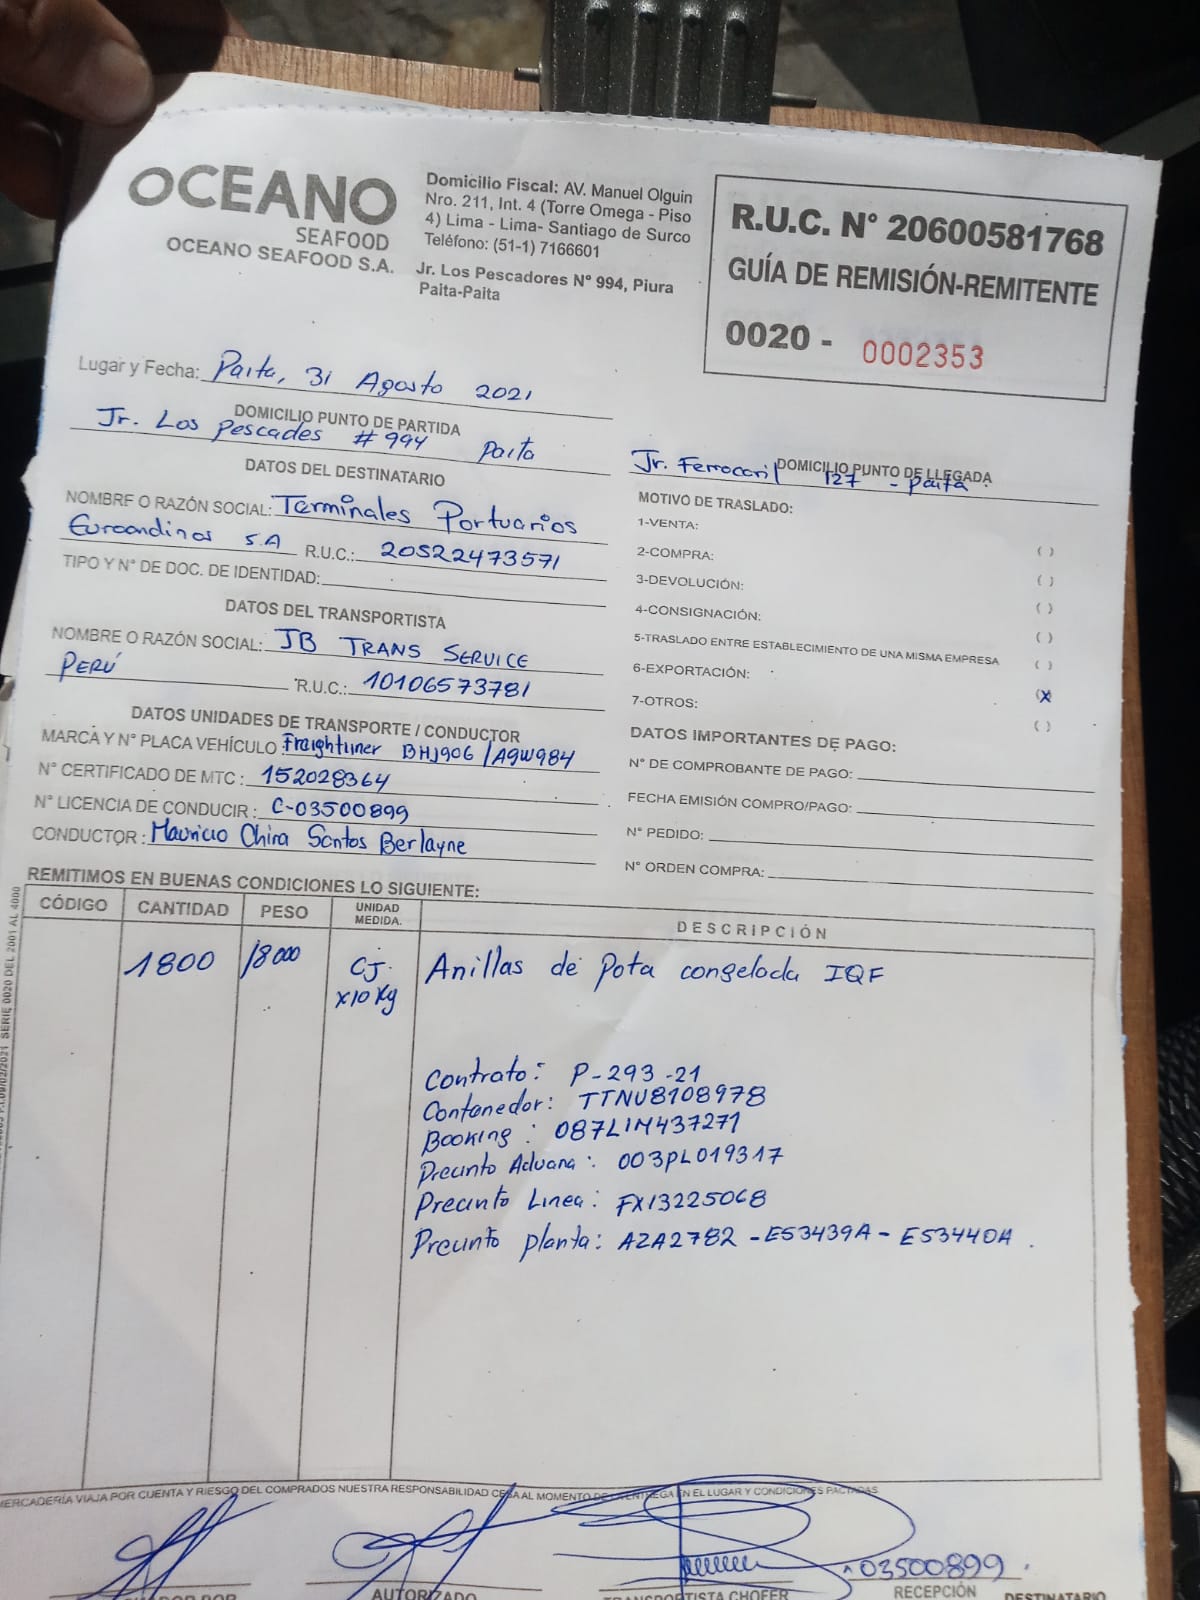 OCEANO
SEAFOOD
OCEANO SEAFOOD S.A.
Domicilio Fiscal: AV. Manuel Olguin
Nro. 211, Int. 4 (Torre Omega - Piso
4) Lima - Lima- Santiago de Surco
Teléfono: (51-1) 7166601
Jr. Los Pescadores N° 994, Piura
Paita-Paita
R.U.C. N° 20600581768
GUÍA DE REMISIÓN-REMITENTE
0020 - 0002353
Lugar y Fecha: Paita, 31 Agosto 2021
DOMICILIO PUNTO DE PARTIDA
Jr. Los Pescades # 994 Paita
DATOS DEL DESTINATARIO
NOMBRE O RAZÓN SOCIAL: Terminales Portuarios
Euroandinos S.A R.U.C.: 20522473571
TIPO Y N° DE DOC. DE IDENTIDAD:
DATOS DEL TRANSPORTISTA
NOMBRE O RAZÓN SOCIAL: JB TRANS SERVICE
PERÚ R.U.C.: 10106573781
DATOS UNIDADES DE TRANSPORTE / CONDUCTOR
MARCA Y N° PLACA VEHÍCULO Freightliner BHJ906 / A9W984
N° CERTIFICADO DE MTC : 152028364
N° LICENCIA DE CONDUCIR : C-03500899
CONDUCTOR : Mauricio Chira Santos Berlayne
DOMICILIO PUNTO DE LLEGADA
Jr. Ferrocaril 127 - Paita
MOTIVO DE TRASLADO:
1-VENTA: ( )
2-COMPRA: ( )
3-DEVOLUCIÓN: ( )
4-CONSIGNACIÓN: ( )
5-TRASLADO ENTRE ESTABLECIMIENTO DE UNA MISMA EMPRESA ( )
6-EXPORTACIÓN: (X)
7-OTROS: ( )
DATOS IMPORTANTES DE PAGO:
N° DE COMPROBANTE DE PAGO:
FECHA EMISIÓN COMPRO/PAGO:
N° PEDIDO:
N° ORDEN COMPRA:
REMITIMOS EN BUENAS CONDICIONES LO SIGUIENTE:
CÓDIGO CANTIDAD PESO UNIDAD MEDIDA. DESCRIPCIÓN
1800 18000 CJ. x10 Kg Anillas de Pota congelada IQF
Contrato: P-293-21
Contenedor: TTNU8108978
Booking : 087LIM437271
Precinto Aduana : 003PL019317
Precinto Linea : FX13225068
Precinto planta: AZA2782 - E53439A - E53440A .
MERCADERÍA VIAJA POR CUENTA Y RIESGO DEL COMPRADOS NUESTRA RESPONSABILIDAD CESA AL MOMENTO DE LA ENTREGA EN EL LUGAR Y CONDICIONES PACTADAS
03500899
AUTORIZADO
TRANSPORTISTA CHOFER
RECEPCIÓN DESTINATARIO
SERIE 0020 DEL 2001 AL 4000